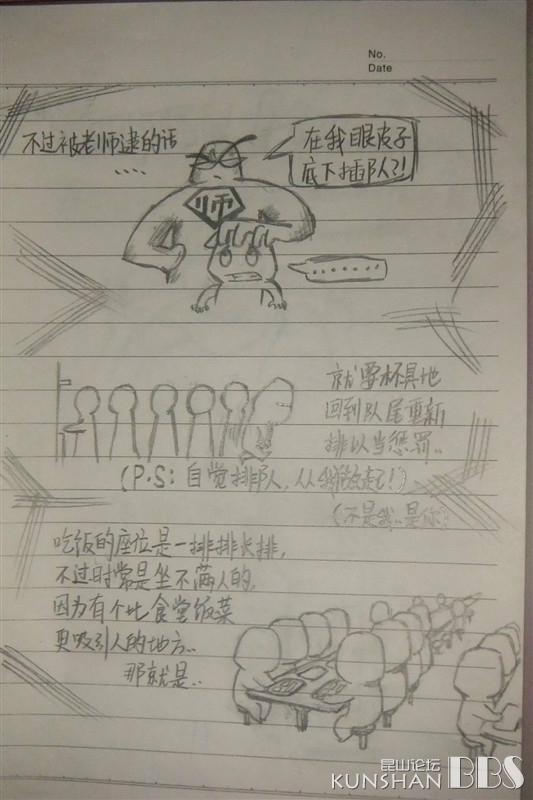 No.
Date
不过被老师逮的话
....
在我眼皮子
底下插队?!
师
.......
就要杯具地
回到队尾重新
排以当惩罚..
(P.S: 自觉排队, 从我做起!)
(不是我..是你)
吃饭的座位是一排排长排,
不过时常是坐不满人的,
因为有个比食堂饭菜
更吸引人的地方..
那就是..
昆山论坛
KUNSHAN BBS